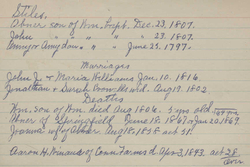 Stiles.
Abner son of Wm. bapt. Dec. 23, 1807.
John " " " " Dec. 23, 1807.
Amydon " " " June 23, 1797.
Marriages
John J. & Maria Williams Jan. 10. 1816.
Jonathan & Sarah Aug 19. 1802.
Deaths
Wm. son of Wm. Aug 1806. 5 mos old
Abner of Springfield June 18. 1867 or Jan 20 1869.
w of Abner Aug 18, 1858 aet 51.
Aaron H. of Conn. d. Apr 3, 1893. aet 28